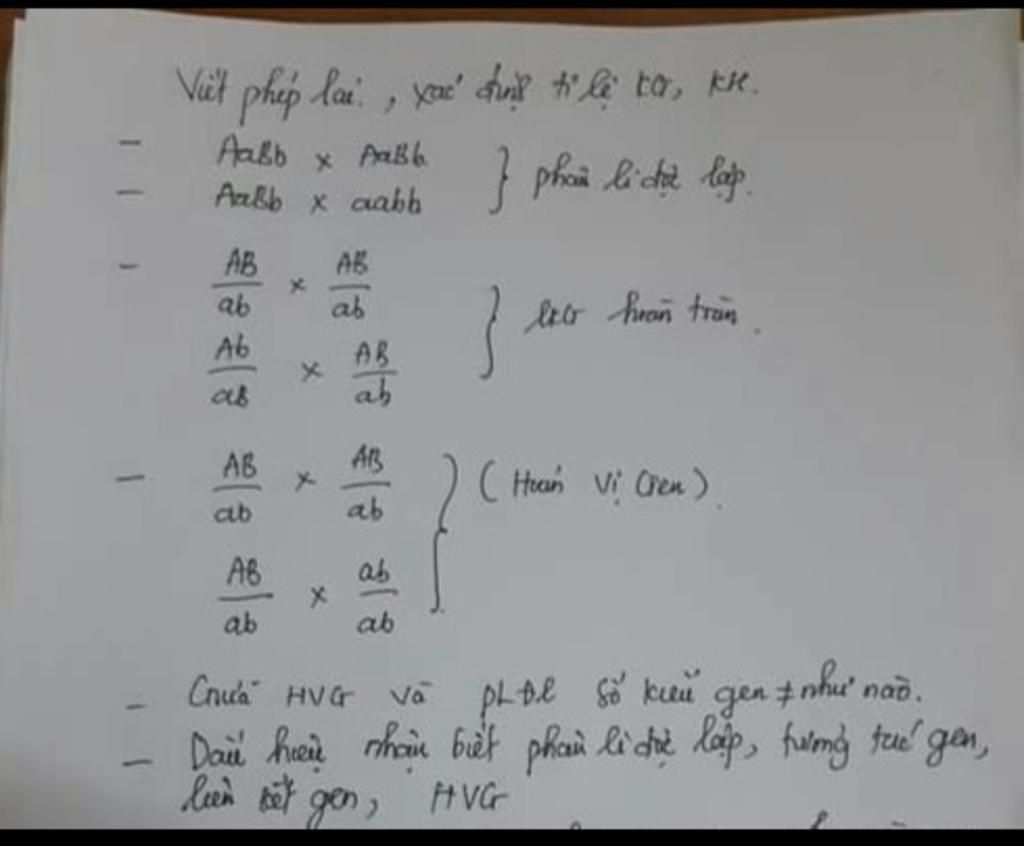 Viết phép lai, xác định tỉ lệ KG, KH.
- AaBb x AaBb
- AaBb x aabb } phân li độc lập.
- AB/ab x AB/ab
Ab/aB x AB/ab } LKG hoàn toàn.
- AB/ab x AB/ab } (Hoán vị Gen).
AB/ab x ab/ab
- Giữa HVG và PLĐL số kiểu gen ≠ như nào.
- Dấu hiệu nhận biết phân li độc lập, tương tác gen,
liên kết gen, HVG